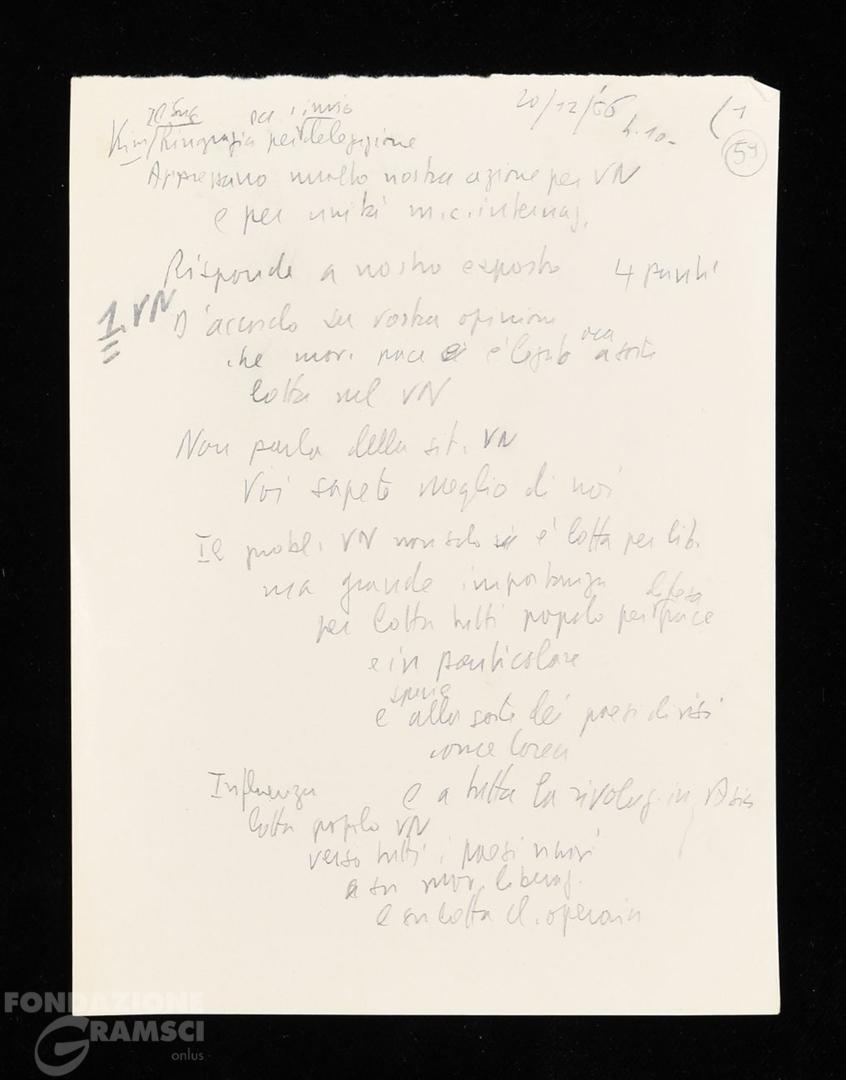 Il Sung per invio 20/12/66 h. 10- (1
Kim/Ringrazia per delegazione 59
Apprezzano molto nostra azione per VN
e per unità m.c.internaz.
Risponde a nostro esposto 4 punti
1. VN D'accordo su vostra opinione
che mov. pace è legato ora a sorte
lotta nel VN
Non parla della sit. VN
Voi sapete meglio di noi
Il probl. VN non solo è lotta per lib.
ma grande importanza difesa
per lotta tutti popolo per pace
e in particolare
specie
e alla sorte dei paesi divisi
come Corea
Influenza e a tutta la rivoluz. in Asia
lotta popolo VN
verso tutti i paesi nuovi
e su mov. liberaz.
e su lotta cl. operaia
FONDAZIONE
GRAMSCI
onlus